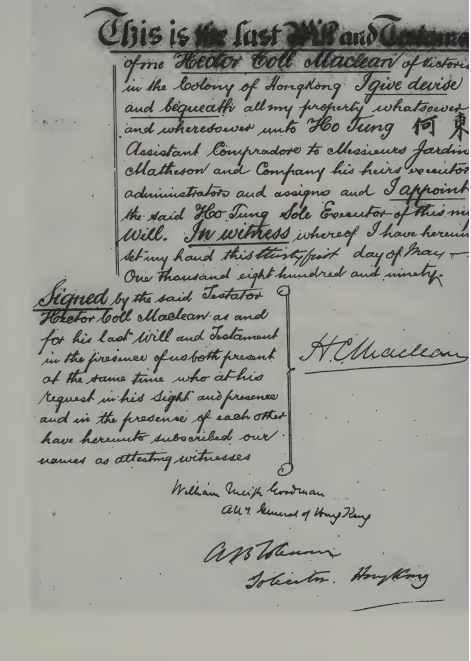 This is the last Will and Testame
of me Hector Coll Maclean of Victoria
in the Colony of Hongkong I give devise
and bequeath all my property whatsoever
and wheresoever unto Ho Tung 何東
Assistant Compradore to Messieurs Jardin
Matheson and Company his heirs executor
administrators and assigns and I appoint
the said Ho Tung Sole Executor of this my
Will. In witness whereof I have hereun
set my hand this thirty first day of May
One thousand eight hundred and ninety.
Signed by the said Testator
Hector Coll Maclean as and
for his last Will and Testament
in the presence of us both present
at the same time who at his
request in his sight and presence
and in the presence of each other
have hereunto subscribed our
names as attesting witnesses
H. C. Maclean
William Meigh Goodman
Att'y General of Hong Kong
Solicitor. Hong Kong